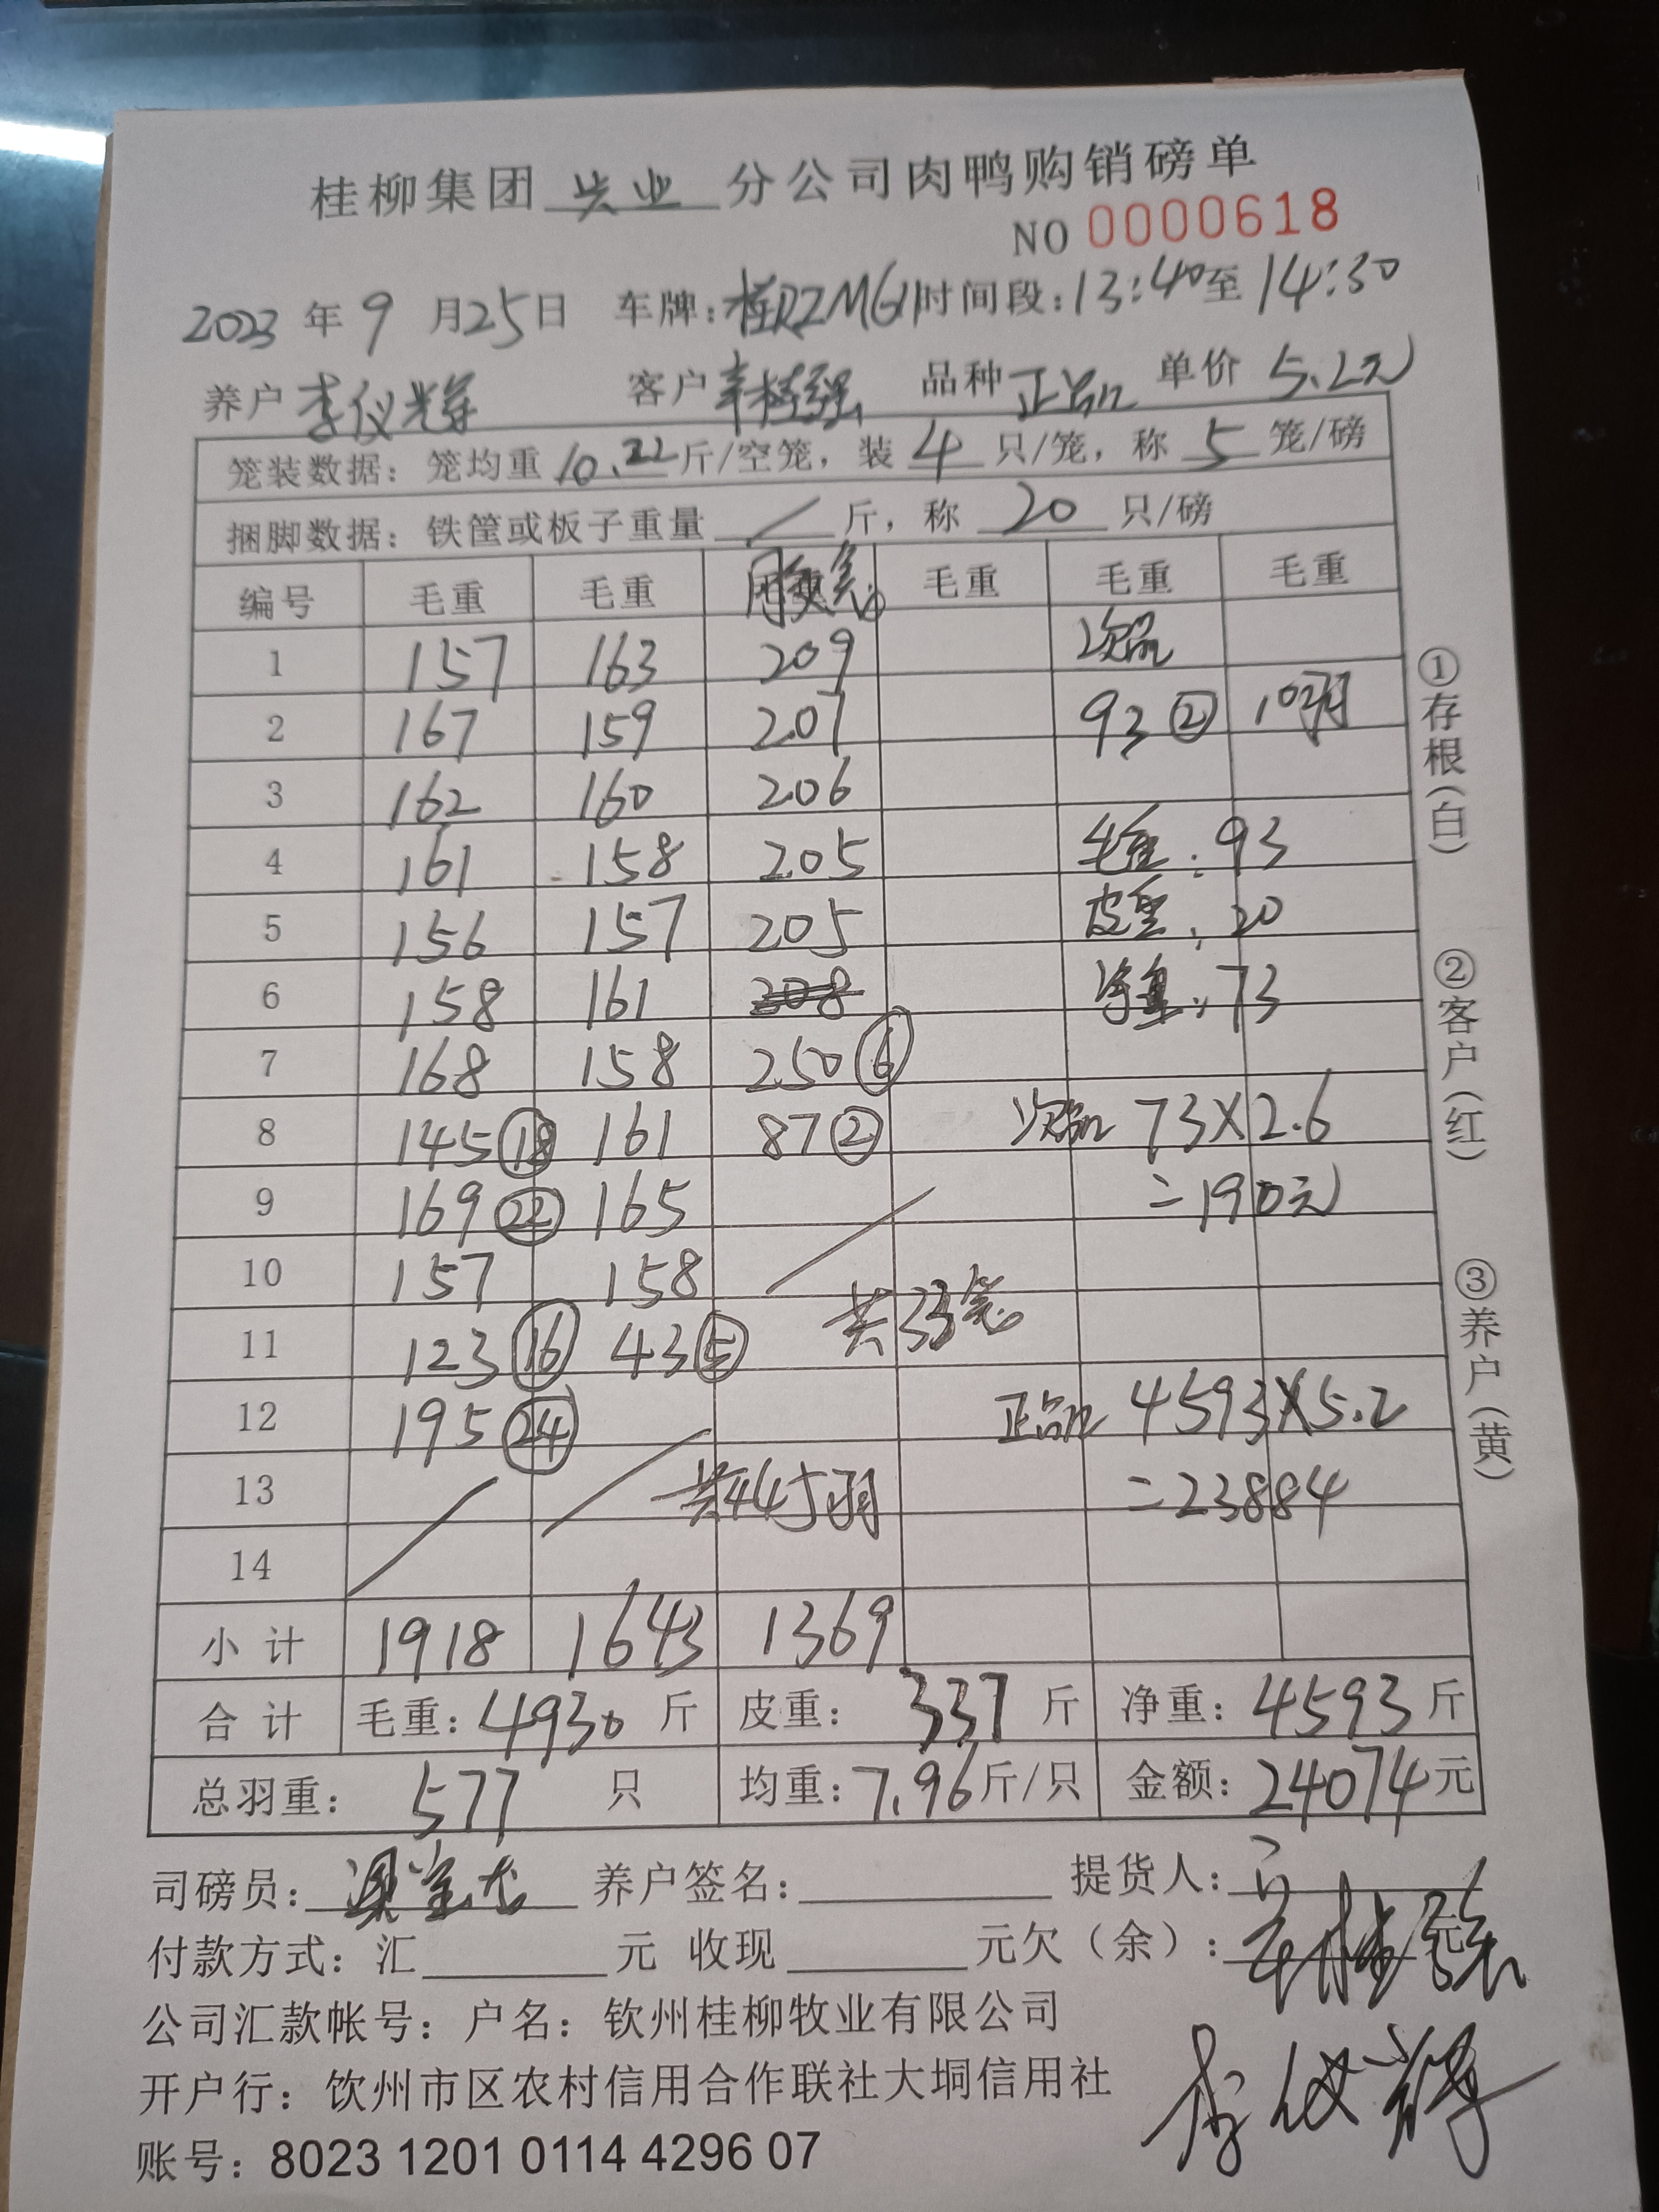 桂柳集团 兴业 分公司肉鸭购销磅单
NO 0000618
2023 年 9 月 25 日 车牌: 时间段: 13:40 至 14:30
养户 李仪辉 客户 辛桂强 品种 正品 单价 5.2元
笼装数据: 笼均重 10.22 斤/空笼, 装 4 只/笼, 称 5 笼/磅
捆脚数据: 铁筐或板子重量 / 斤, 称 20 只/磅
编号 毛重 毛重 毛重 毛重 毛重
1 157 163 209 次品
2 167 159 207 93 ② 10羽
3 162 160 206
4 161 158 205 毛重: 93
5 156 157 205 皮重: 20
6 158 161 208 净重: 73
7 168 158 250 ⑥
8 145 ⑱ 161 87 ② 次品 73×2.6
9 169 ㉒ 165 =190元
10 157 158
11 123 ⑯ 43 ⑤ 共33笼
12 195 ㉔ 正品 4593×5.2
13 共445羽 =23884
14
小计 1918 1643 1369
合计 毛重: 4930 斤 皮重: 337 斤 净重: 4593 斤
总羽重: 577 只 均重: 7.96 斤/只 金额: 24074 元
司磅员: 养户签名: 提货人: 辛桂强
付款方式: 汇 元 收现 元欠(余): 元
李仪辉
公司汇款帐号: 户名: 钦州桂柳牧业有限公司
开户行: 钦州市区农村信用合作联社大垌信用社
账号: 8023 1201 0114 4296 07
①存根(白)
②客户(红)
③养户(黄)